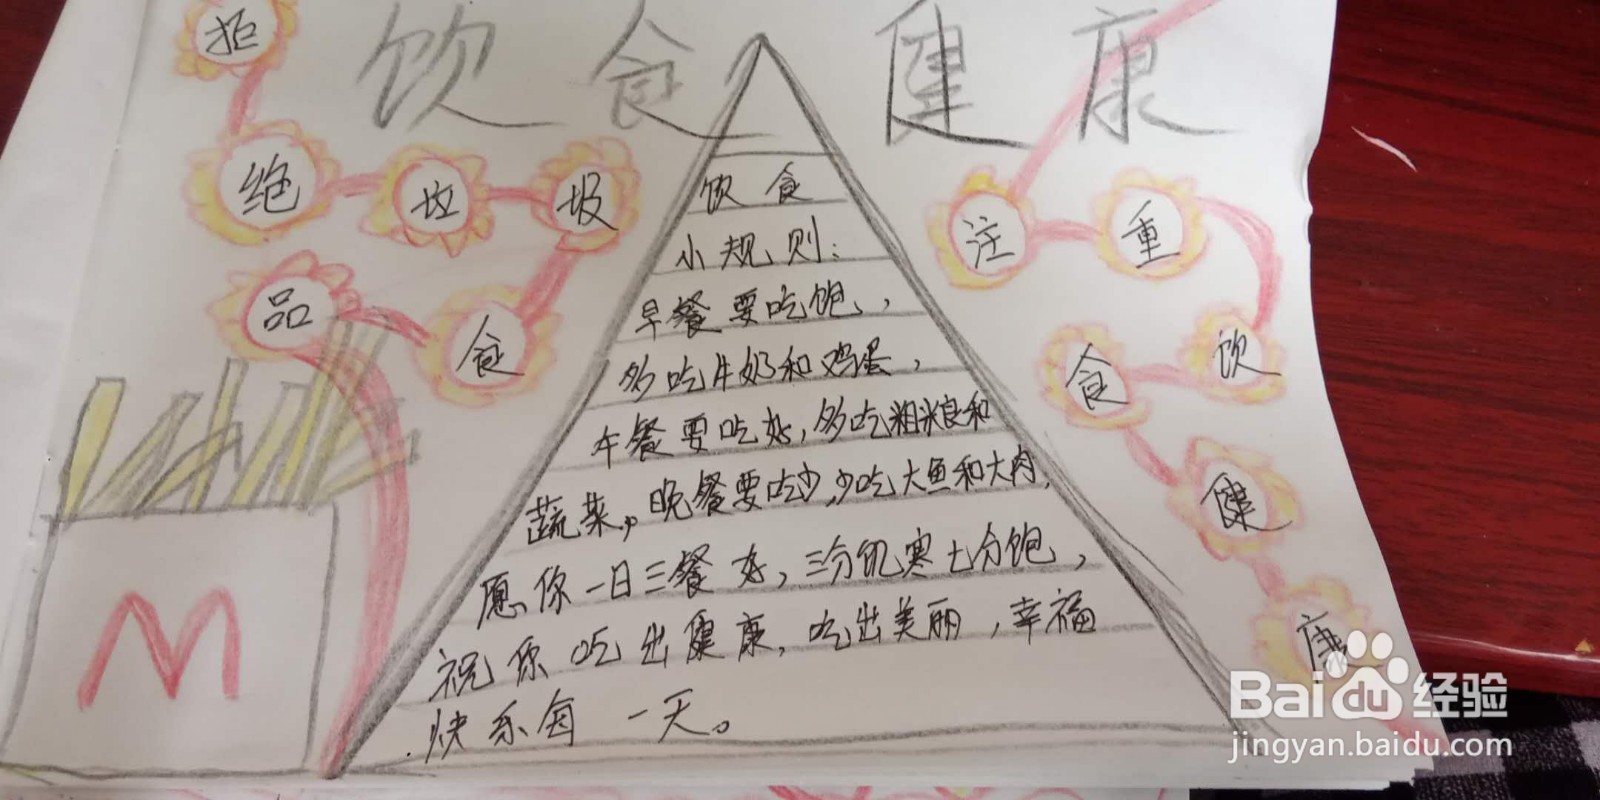 饮食健康
拒
绝垃圾
食品
注重
饮食
健
康
饮食
小规则：
早餐要吃饱，
多吃牛奶和鸡蛋，
午餐要吃好，多吃粗粮和
蔬菜，晚餐要吃少，少吃大鱼和大肉，
愿你一日三餐好，三分饥寒七分饱，
祝你吃出健康，吃出美丽，幸福
快乐每一天。
M
Baidu经验
jingyan.baidu.com